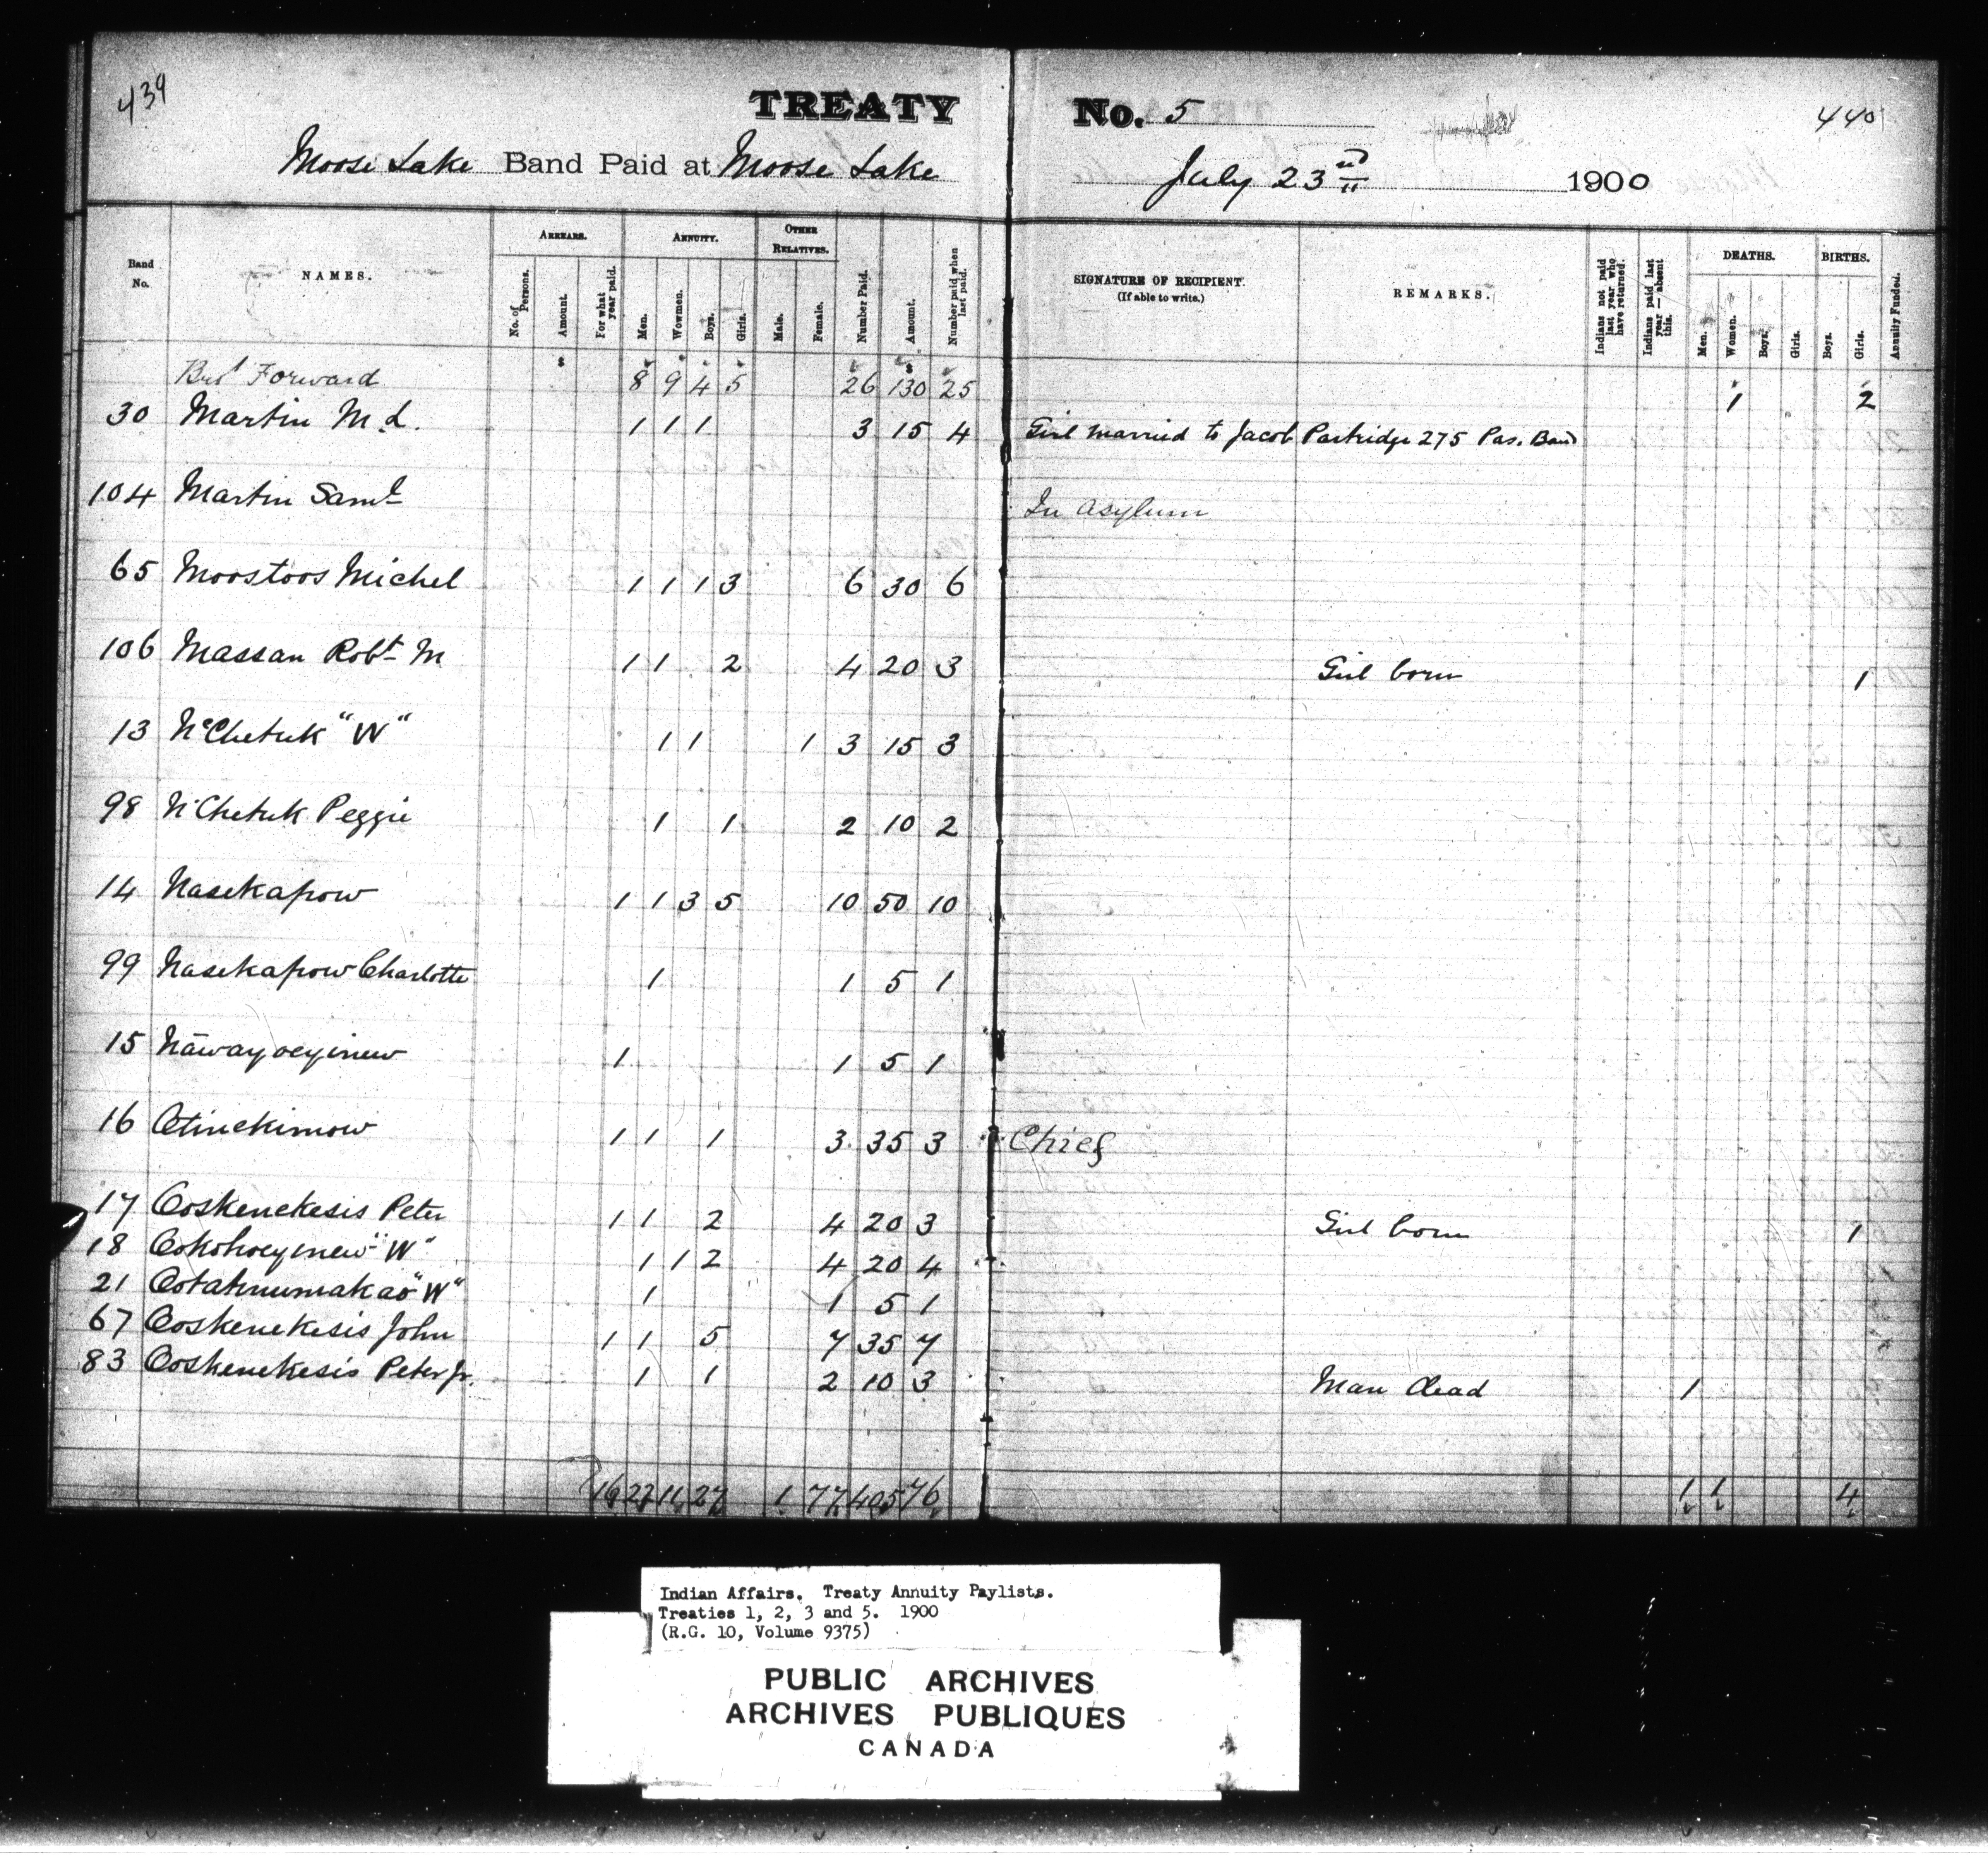 439
TREATY No. 5
440
Moose Lake Band Paid at Moose Lake July 23rd 1900
Band No. NAMES. ARREARS. No. of Persons. Amount. For what year paid. ANNUITY. Men. Wowmen. Boys. Girls. OTHER RELATIVES. Male. Female. Number Paid. Amount. Number paid when last paid. SIGNATURE OF RECIPIENT. (If able to write.) REMARKS. Indians not paid last year who have returned. Indians paid last year — absent this. DEATHS. Men. Women. Boys. Girls. BIRTHS. Boys. Girls. Annuity Funded.
$ $
Brot Forward 8 9 4 5 26 130 25 1 2
30 Martin M.d. 1 1 1 3 15 4 Girl married to Jacob Partridge 275 Pas. Band
104 Martin Saml In Asylum
65 Moostoos Michel 1 1 1 3 6 30 6
106 Massan Robt M 1 1 2 4 20 3 Girl born 1
13 NcChetuk "W" 1 1 1 3 15 3
98 N'Chetuk Peggie 1 1 2 10 2
14 Nasekapow 1 1 3 5 10 50 10
99 Nasekapow Charlotte 1 1 5 1
15 Nāwayoeyinew 1 1 5 1
16 Otinekimow 1 1 1 3 35 3 Chief
17 Ooskenekesis Peter 1 1 2 4 20 3 Girl born 1
18 Ookohoeyinew "W" 1 1 2 4 20 4
21 "W" 1 1 5 1
67 Ooskenekesis John 1 1 5 7 35 7
83 Ooskenekesis Peter Jr. 1 1 2 10 3 Man dead 1
16 23 11 27 1 77 405 76 1 1 4
Indian Affairs. Treaty Annuity Paylists.
Treaties 1, 2, 3 and 5. 1900
(R.G. 10, Volume 9375)
PUBLIC ARCHIVES
ARCHIVES PUBLIQUES
CANADA